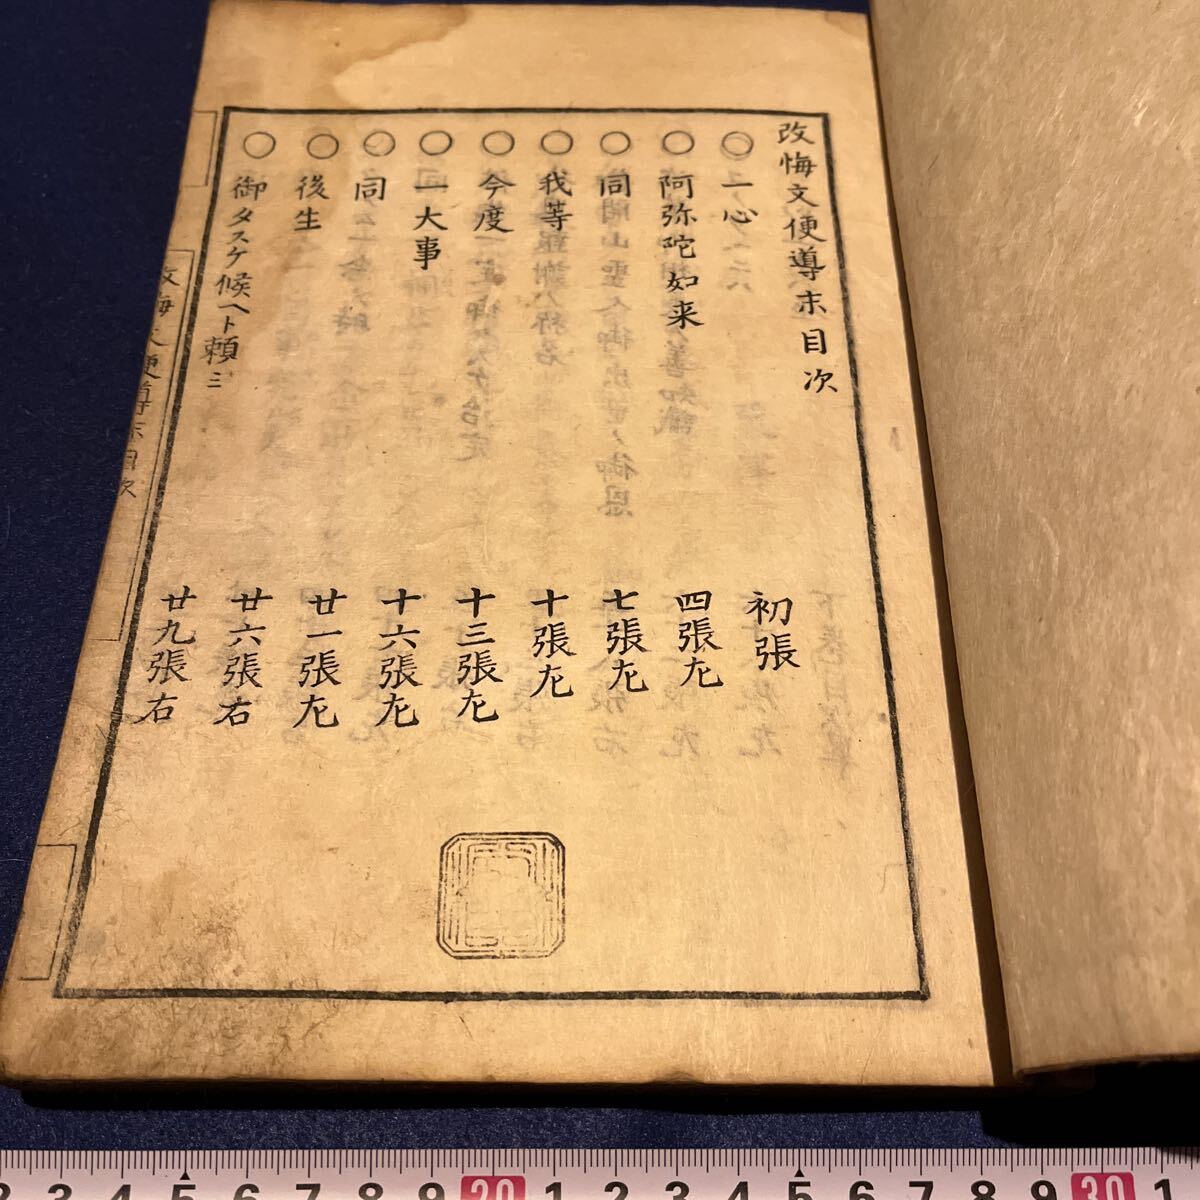 改悔文便導末目次
○一心 初張
○阿弥陀如来 四張左
○同 七張左
○我等 十張左
○今度 十三張左
○一大事 十六張左
○同 廿一張左
○後生 廿六張右
○御タスケ候ヘト頼ミ 廿九張右
改悔文便導末目次
2 3 4 5 6 7 8 9 20 1 2 3 4 5 6 7 8 9 30 1